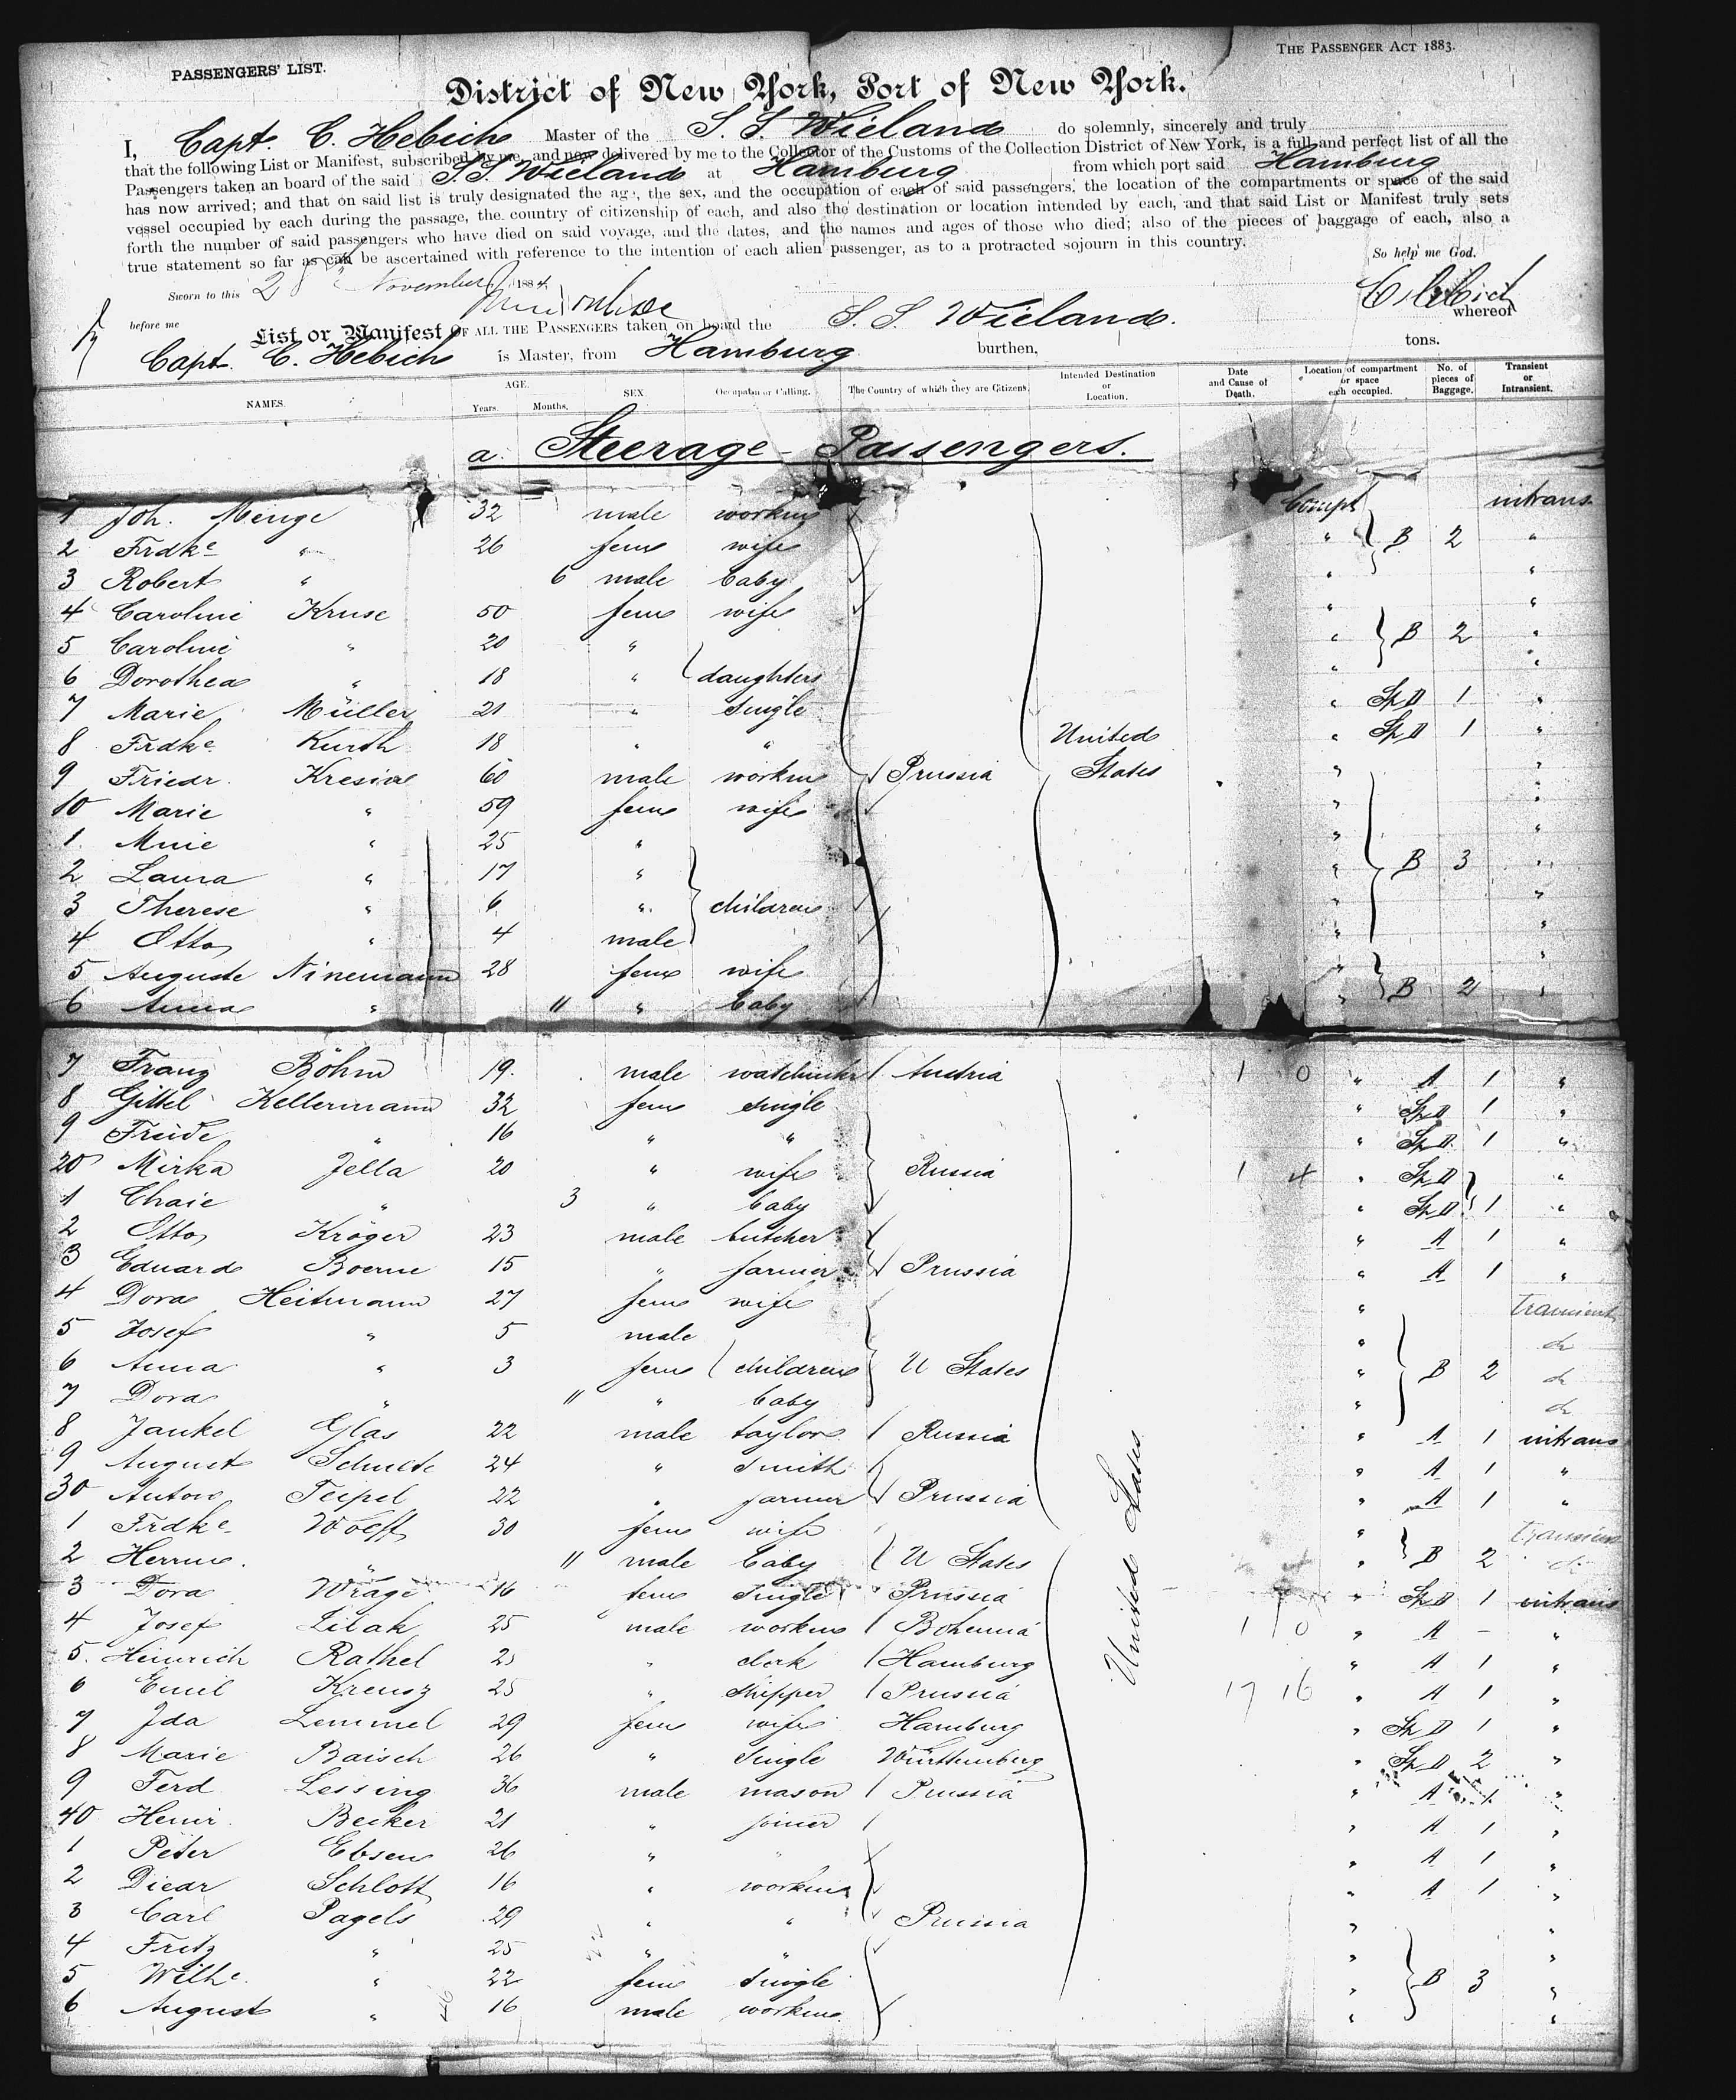 PASSENGERS' LIST.
THE PASSENGER ACT 1883.
District of New York, Port of New York.
I, Capt. C. Hebich Master of the S. S. Wieland do solemnly, sincerely and truly
that the following List or Manifest, subscribed by me, and now delivered by me to the Collector of the Customs of the Collection District of New York, is a full and perfect list of all the
Passengers taken an board of the said S.S. Wieland at Hamburg from which port said Hamburg
has now arrived; and that on said list is truly designated the age, the sex, and the occupation of each of said passengers, the location of the compartments or space of the said
vessel occupied by each during the passage, the country of citizenship of each, and also the destination or location intended by each, and that said List or Manifest truly sets
forth the number of said passengers who have died on said voyage, and the dates, and the names and ages of those who died; also of the pieces of baggage of each, also a
true statement so far as can be ascertained with reference to the intention of each alien passenger, as to a protracted sojourn in this country.
So help me God.
Sworn to this 28 November 1884
before me
C. Hebich
List or Manifest OF ALL THE PASSENGERS taken on board the S. S. Wieland. whereof
Capt. C. Hebich is Master, from Hamburg burthen, tons.
NAMES. AGE. Years. Months. SEX. Occupation or Calling. The Country of which they are Citizens. Intended Destination or Location. Date and Cause of Death. Location of compartment or space each occupied. No. of pieces of Baggage. Transient or Intransient.
a. Steerage-Passengers.
1 Joh. Menge 32 male workm Compt intrans
2 Frdke " 26 fem wife " B 2 "
3 Robert " 6 male baby " "
4 Caroline Kruse 50 fem wife " "
5 Caroline " 20 " " B 2 "
6 Dorothea " 18 " daughters " "
7 Marie Müller 21 " single " Sp D 1 "
8 Frdke Kurth 18 " " United " Sp D 1 "
9 Friedr. 60 male workm Prussia States " "
10 Marie " 59 fem wife " "
1 " 25 " " "
2 Laura " 17 " " B 3 "
3 Therese " 6 " children " "
4 Otto " 4 male " "
5 Auguste Ninemann 28 fem wife " "
6 Anna " 11 " baby " B 2 "
7 Franz Böhm 19 male Austria 1 0 " A 1 "
8 Gittel Kellermann 32 fem single " Sp D 1 "
9 Freide " 16 " " " Sp D 1 "
20 Mirka Jella 20 " wife Russia 1 4 " Sp D "
1 Chaie " 3 " baby " Sp D 1 "
2 Otto Kröger 23 male butcher " A 1 "
3 Eduard Boerne 15 " farmer Prussia " A 1 "
4 Dora Heitmann 27 fem wife " transient
5 Josef " 5 male " do
6 Anna " 3 fem children U States " B 2 do
7 Dora " 11 " baby " do
8 Jankel Glas 22 male taylor Russia " A 1 intrans
9 August Schulte 24 " smith " A 1 "
30 Anton Teipel 22 " farmer Prussia " A 1 "
1 Frdke Wolff 30 fem wife " transient
2 Herm. " 11 male baby U States " B 2 do
3 Dora Wrage 16 fem single Prussia " Sp D 1 intrans
4 Josef Zilak 25 male workm Bohemia 1 0 " A - "
5 Heinrich Rathel 25 " clerk Hamburg " A 1 "
6 Emil Kreusz 25 " skipper Prussia 17 16 " A 1 "
7 Ida Lemmel 29 fem wife Hamburg " Sp D 1 "
8 Marie Baisch 26 " single Württemberg " Sp D 2 "
9 Ferd. Lessing 36 male mason Prussia " A 1 "
40 Heinr. Becker 21 " joiner " A 1 "
1 Peter Ebsen 26 " " " A 1 "
2 Diedr Schlott 16 " workm " A 1 "
3 Carl Pagels 29 " " Prussia " "
4 Fritz " 25 " " " "
5 Wilhe. " 22 fem single " B 3 "
6 August " 16 male workm " "
United States